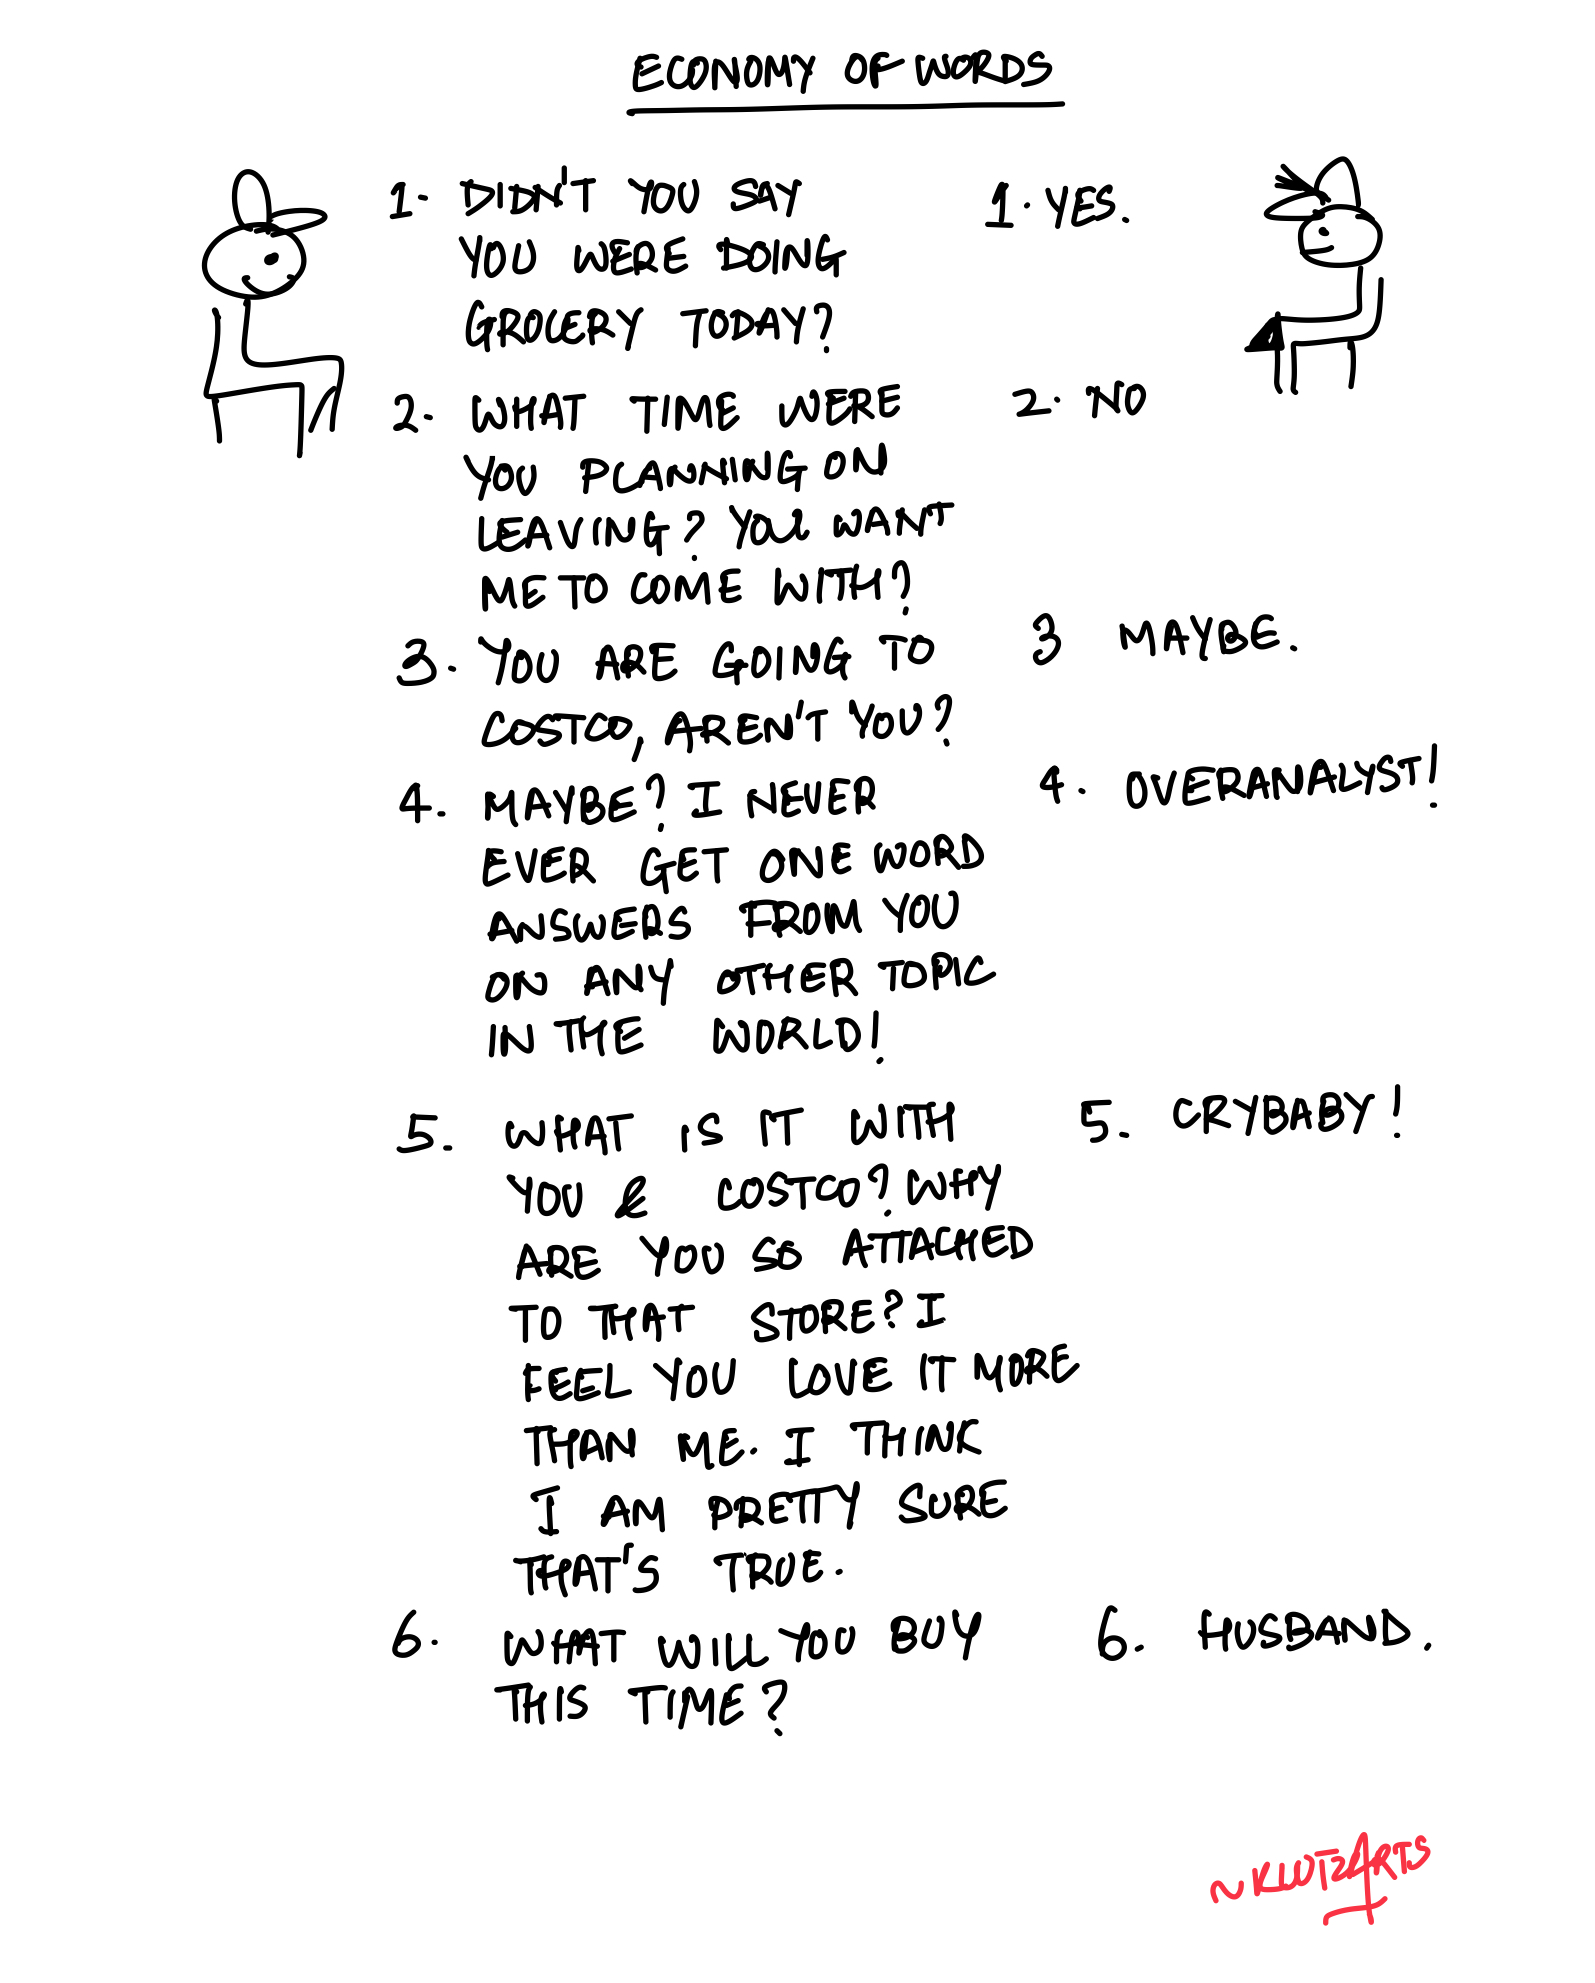 ECONOMY OF WORDS
1. DIDN'T YOU SAY
YOU WERE DOING
GROCERY TODAY?
1. YES.
2. WHAT TIME WERE
YOU PLANNING ON
LEAVING? YOU WANT
ME TO COME WITH?
2. NO
3. YOU ARE GOING TO
COSTCO, AREN'T YOU?
3 MAYBE.
4. MAYBE? I NEVER
EVER GET ONE WORD
ANSWERS FROM YOU
ON ANY OTHER TOPIC
IN THE WORLD!
4. OVERANALYST!
5. WHAT IS IT WITH
YOU & COSTCO? WHY
ARE YOU SO ATTACHED
TO THAT STORE? I
FEEL YOU LOVE IT MORE
THAN ME. I THINK
I AM PRETTY SURE
THAT'S TRUE.
5. CRYBABY!
6. WHAT WILL YOU BUY
THIS TIME?
6. HUSBAND.
~KLUTZARTS